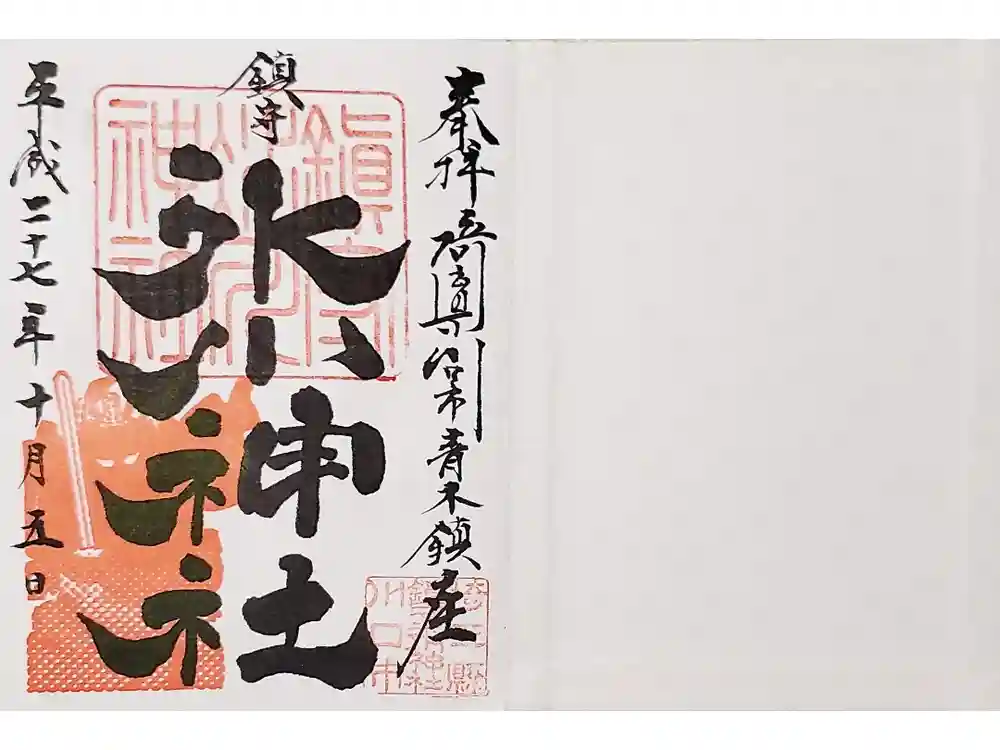 奉拝 埼玉県川口市青木鎮座
鎮守
氷川神社
平成二十七年十月五日
鎮守氷川神社
埼玉縣
鎮守氷川神社
川口市